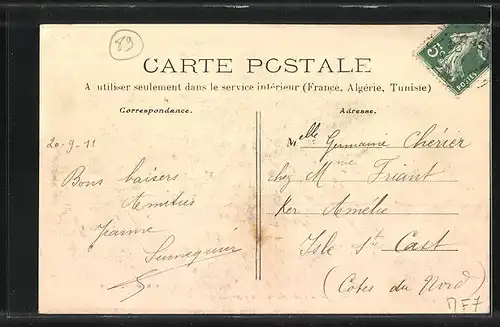 89
CARTE POSTALE
A utiliser seulement dans le service intérieur (France, Algérie, Tunisie)
Correspondance.
Adresse.
20-9-11
Bons baisers
Amitiés
Jeanne
Melle Germaine Chérier
chez Mme Friant
Ker Amélie
Isle St Cast
(Cotes du Nord)
5c
POSTES